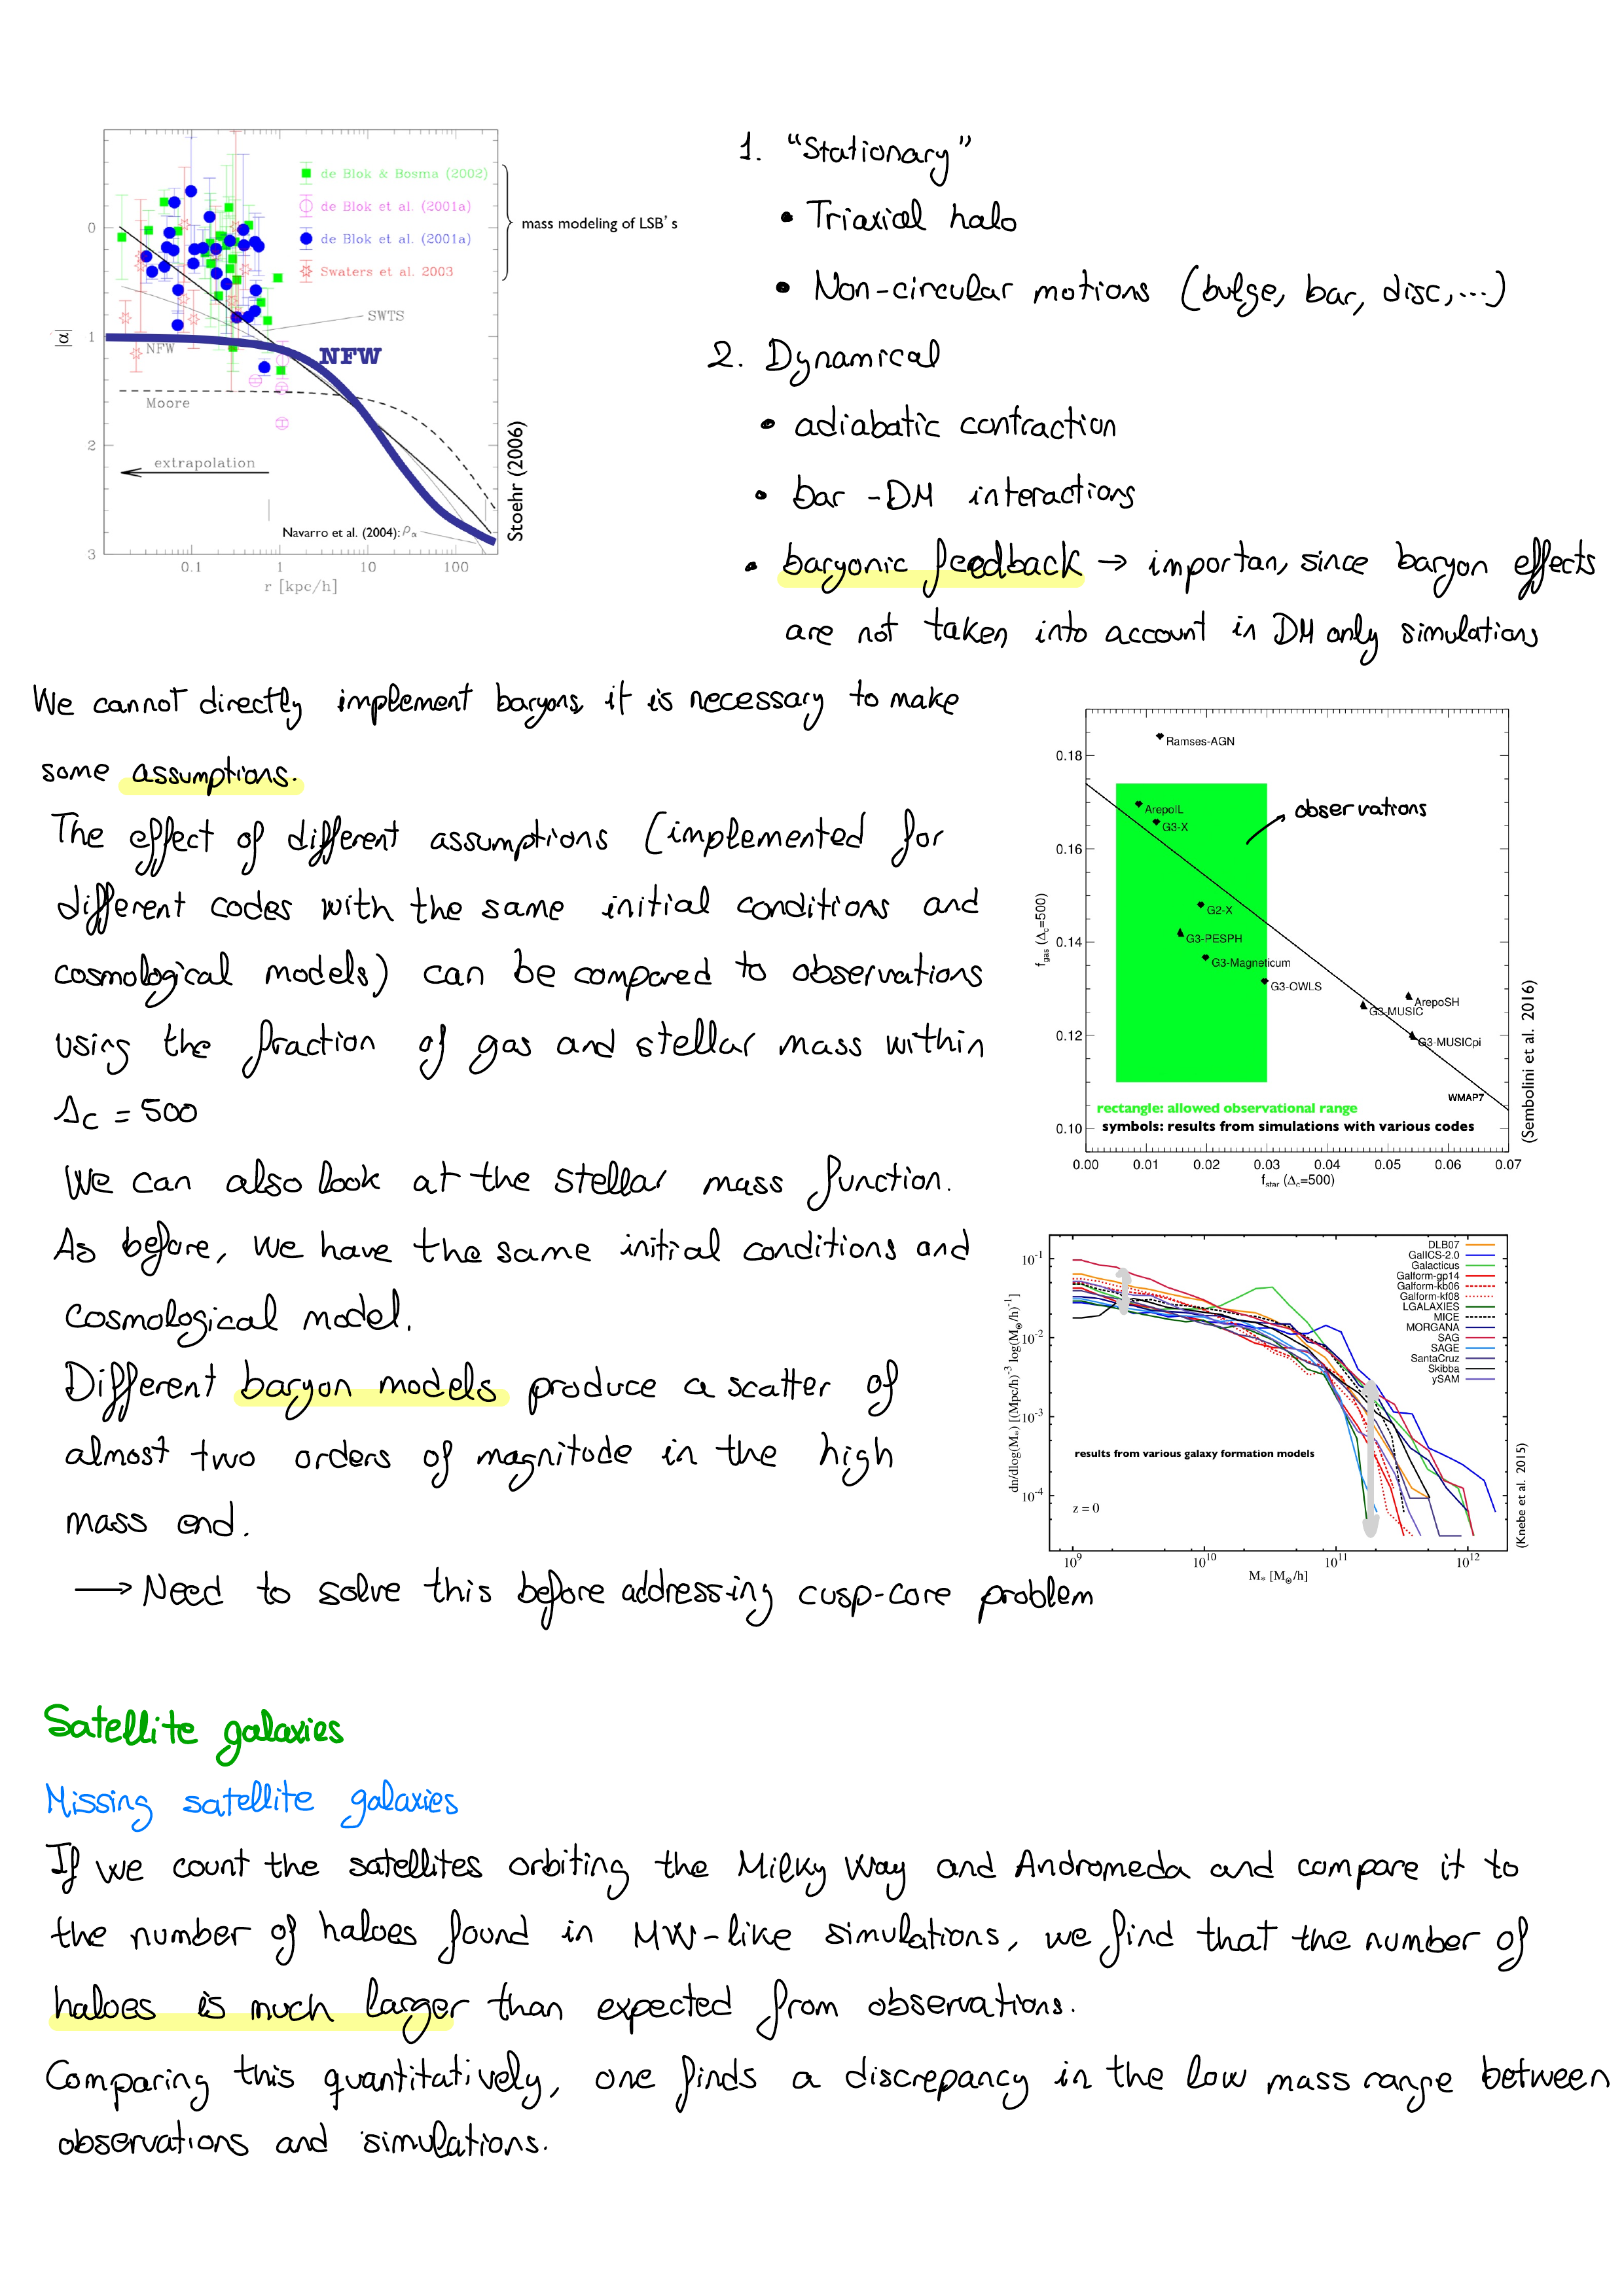 de Blok & Bosma (2002)
de Blok et al. (2001a)
de Blok et al. (2001a)
Swaters et al. 2003
mass modeling of LSB's
SWTS
NFW
NFW
Moore
extrapolation
Navarro et al. (2004): ρα
0
1
2
3
|α|
0.1 1 10 100
r [kpc/h]
Stoehr (2006)
1. "Stationary"
• Triaxial halo
• Non-circular motions (bulge, bar, disc,...)
2. Dynamical
• adiabatic contraction
• bar - DM interactions
• baryonic feedback → importan, since baryon effects
are not taken into account in DM only simulations
We cannot directly implement baryons, it is necessary to make
some assumptions.
The effect of different assumptions (implemented for
different codes with the same initial conditions and
cosmological models) can be compared to observations
using the fraction of gas and stellar mass within
Δc = 500
0.18
0.16
0.14
0.12
0.10
fgas (Δc=500)
Ramses-AGN
ArepoIL
G3-X
observations
G2-X
G3-PESPH
G3-Magneticum
G3-OWLS
ArepoSH
G3-MUSIC
G3-MUSICpi
WMAP7
rectangle: allowed observational range
symbols: results from simulations with various codes
0.00 0.01 0.02 0.03 0.04 0.05 0.06 0.07
fstar (Δc=500)
(Sembolini et al. 2016)
We can also look at the stellar mass function.
As before, we have the same initial conditions and
cosmological model.
Different baryon models produce a scatter of
almost two orders of magnitude in the high
mass end.
→ Need to solve this before addressing cusp-core problem
10⁻¹
10⁻²
10⁻³
10⁻⁴
dn/dlog(M*) [(Mpc/h)⁻³ log(M⊙/h)⁻¹]
DLB07
GalICS-2.0
Galacticus
Galform-gp14
Galform-kb06
Galform-kf08
LGALAXIES
MICE
MORGANA
SAG
SAGE
SantaCruz
Skibba
ySAM
results from various galaxy formation models
z = 0
10⁹ 10¹⁰ 10¹¹ 10¹²
M* [M⊙/h]
(Knebe et al. 2015)
Satellite galaxies
Missing satellite galaxies
If we count the satellites orbiting the Milky Way and Andromeda and compare it to
the number of haloes found in MW-like simulations, we find that the number of
haloes is much larger than expected from observations.
Comparing this quantitatively, one finds a discrepancy in the low mass range between
observations and simulations.